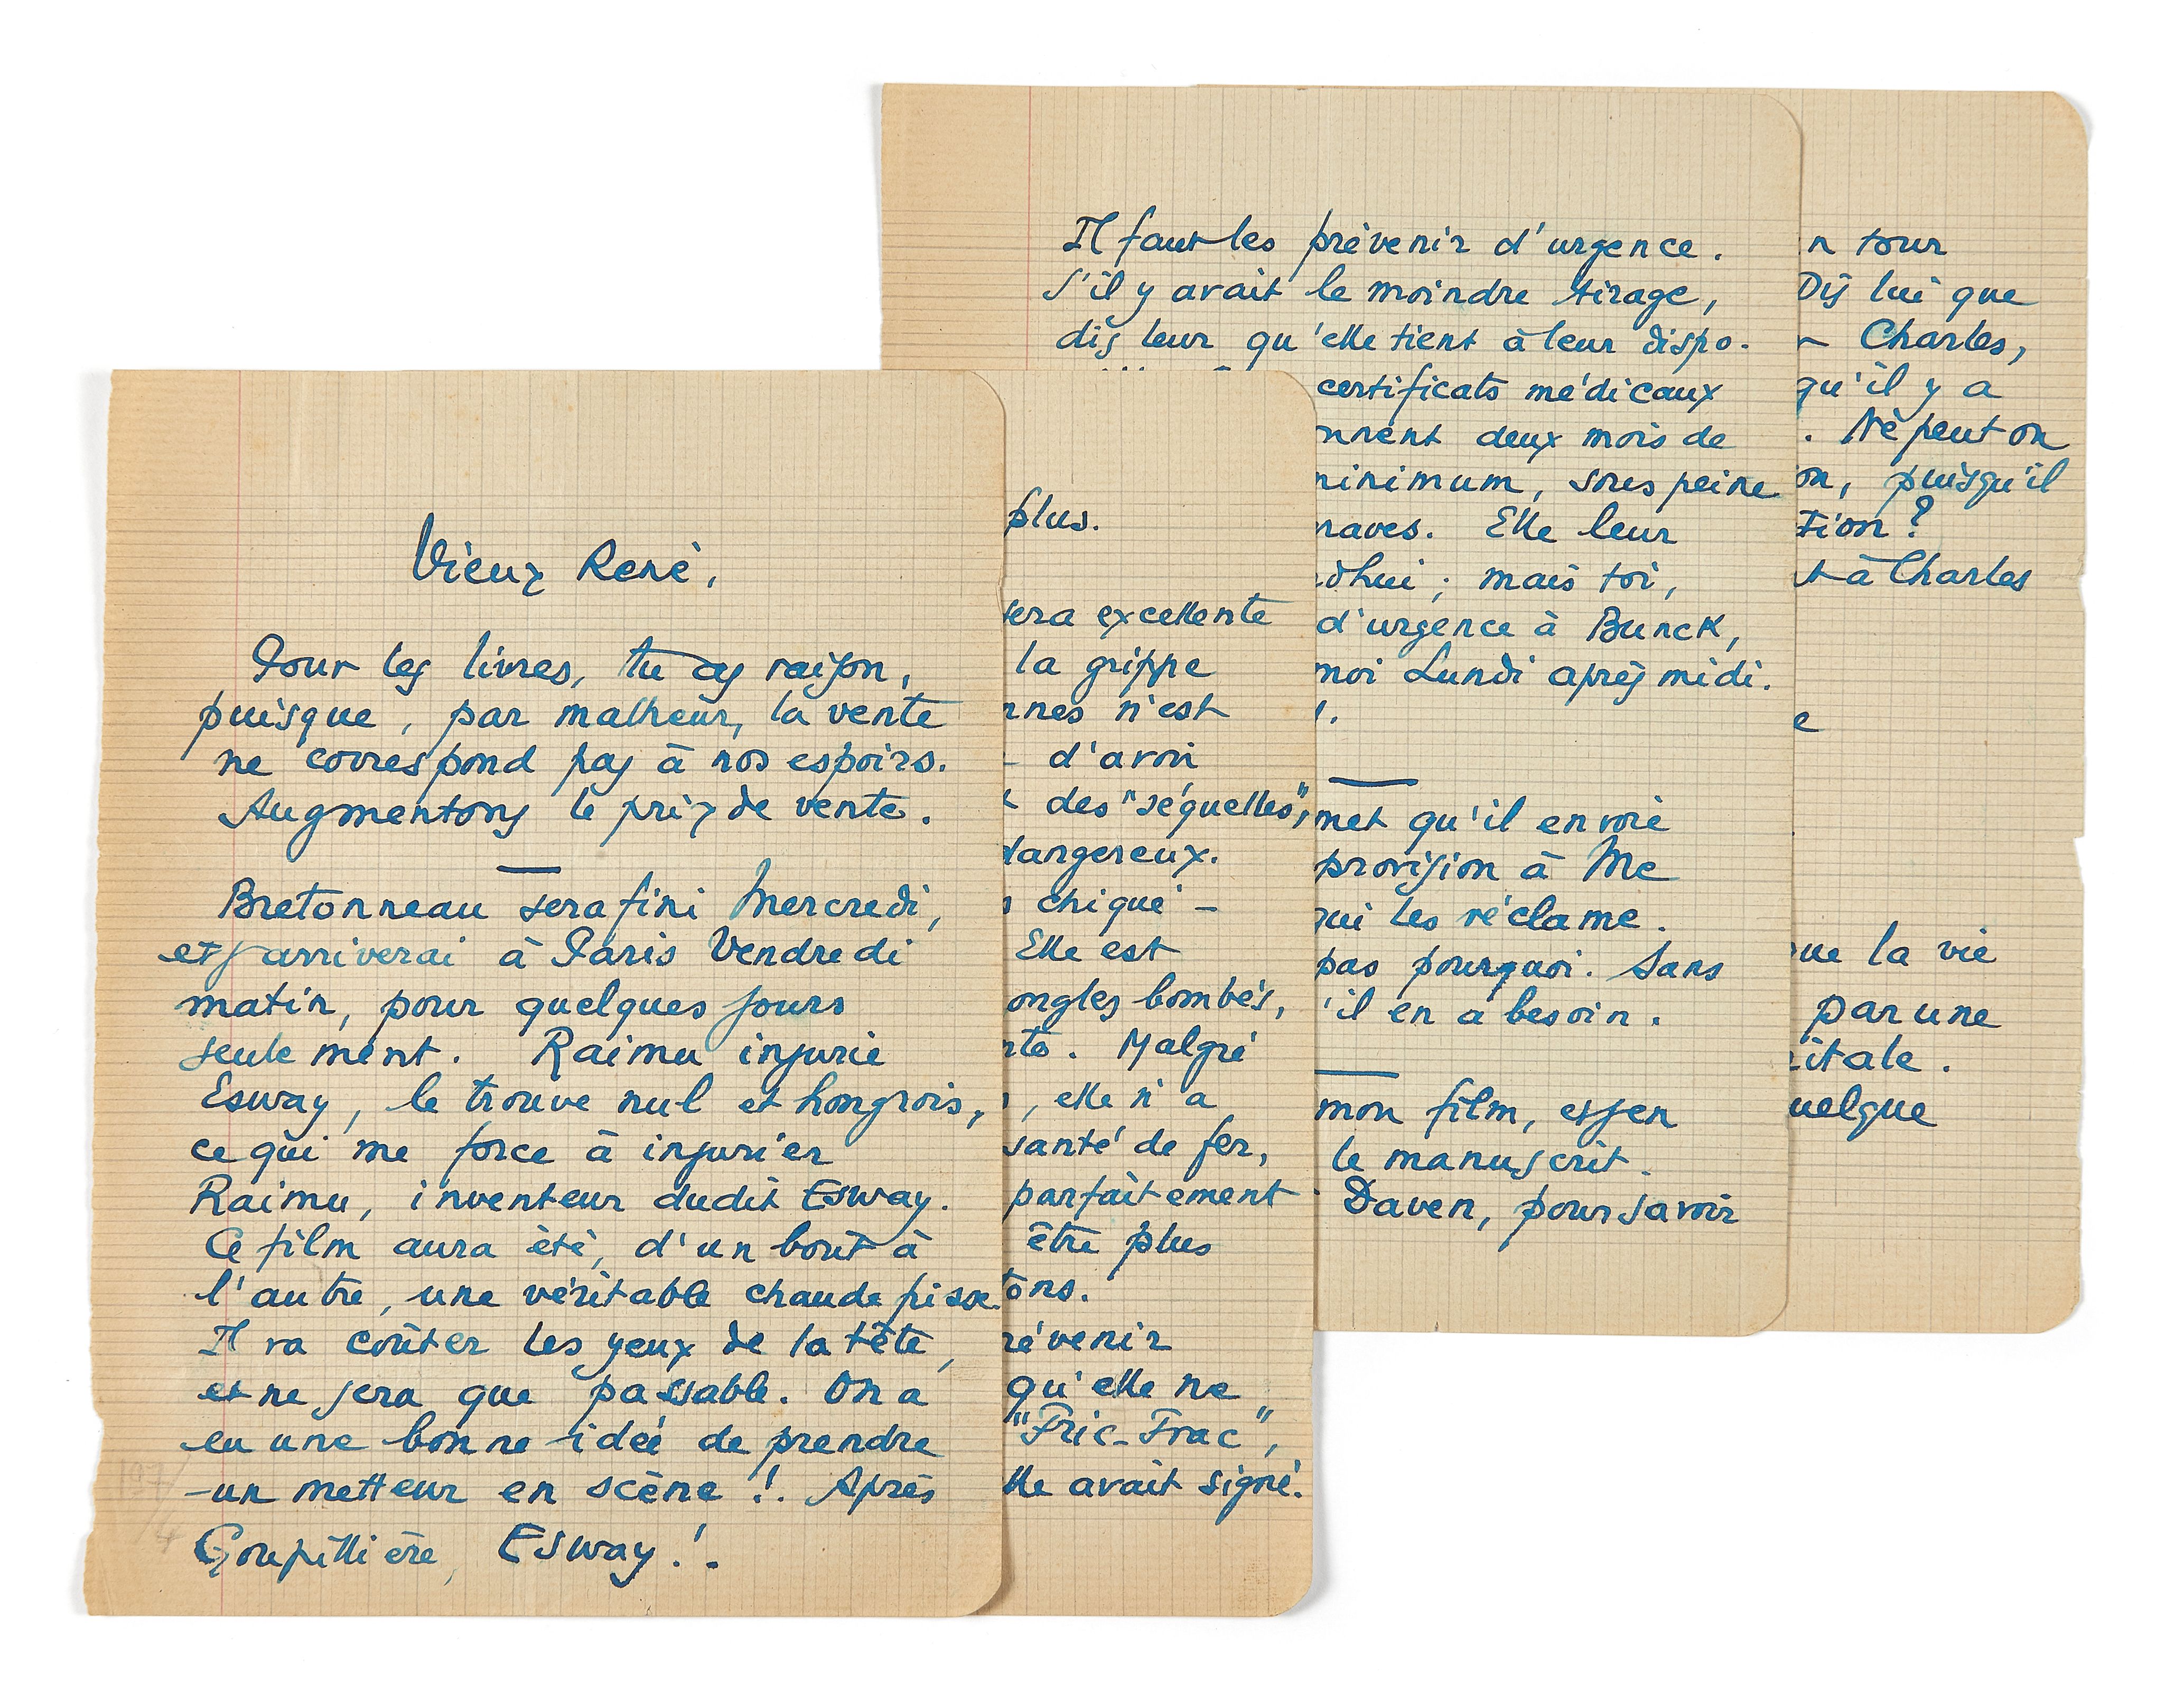 Vieux René,
Pour les livres, tu as raison,
puisque, par malheur, la vente
ne correspond pas à nos espoirs.
Augmentons le prix de vente.
Bretonneau sera fini Mercredi,
et j'arriverai à Paris Vendredi
matin, pour quelques jours
seulement. Raimu injurie
Esway, le trouve nul et hongrois,
ce qui me force à injurier
Raimu, inventeur dudit Esway.
Ce film aura été, d'un bout à
l'autre, une véritable chaude pisse.
Il va coûter les yeux de la tête,
et ne sera que passable. On a
eu une bonne idée de prendre
un metteur en scène !. Après
Goupillière, Esway !.
plus.
sera excellente
la grippe
nnes n'est
d'avoir
des "séquelles",
dangereux.
chiqué -
Elle est
ongles bombés,
nts. Malgré
, elle n'a
santé de fer,
parfaitement
être plus
tons.
révenir
qu'elle ne
"Fric-Frac",
lle avait signé.
Il faut les prévenir d'urgence.
S'il y avait le moindre tirage,
dis leur qu'elle tient à leur dispo-
certificats médicaux
onnent deux mois de
minimum, sous peine
raves. Elle leur
dhui ; mais toi,
d'urgence à Bunck,
moi Lundi après midi.
met qu'il envoie
provision à Me
qui les réclame.
pas pourquoi. Sans
'il en a besoin.
mon film, et j'en
le manuscrit.
Daven, pour savoir
n tour
Dis lui que
Charles,
qu'il y a
. Ne peut on
on, puisqu'il
tion ?
t à Charles
e
que la vie
par une
itale.
uelque